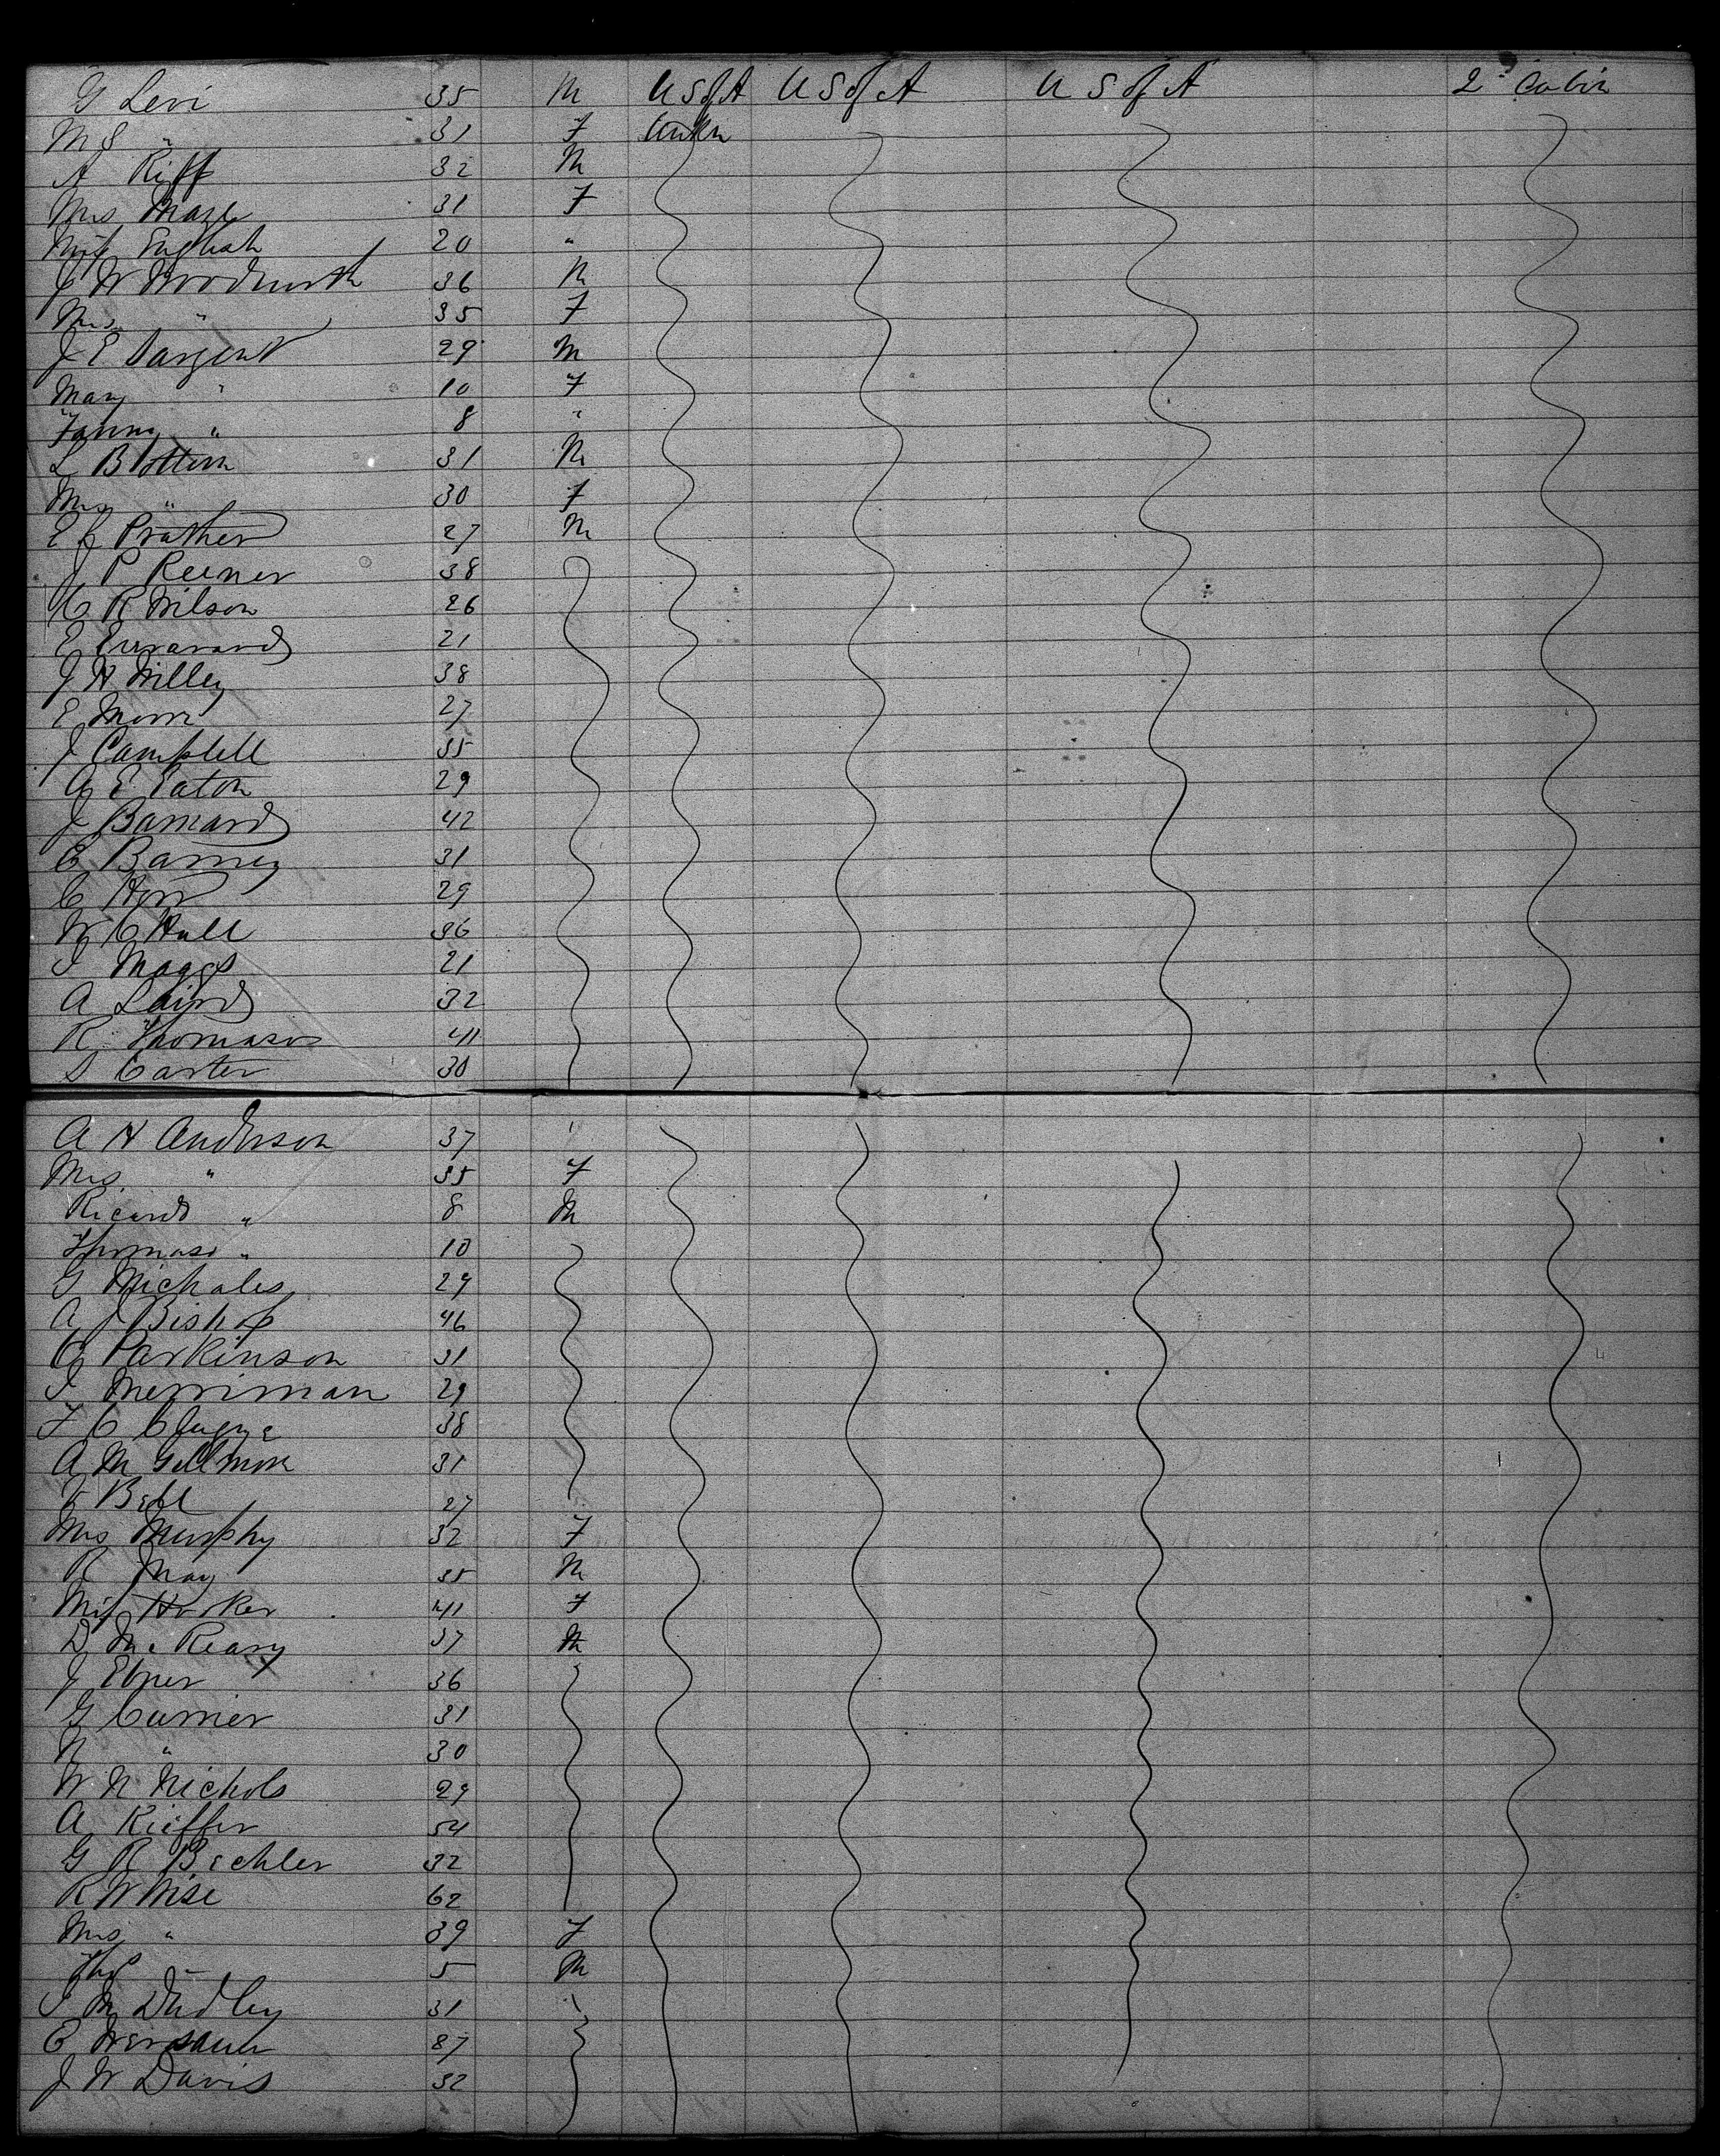 G Levi 35 M U S of A U S of A U S of A 2 Cabin
M S " 31 F Unkn
A Riff 32 M
Mrs Maze 31 F
Miss English 20 "
J W Woodworth 36 M
Mrs " 35 F
J E Sargent 29 M
Mary " 10 F
Fanny " 8 "
L B 31 M
Mrs " 30 F
E J Prather 27 M
J P Reener 38
C R Wilson 26
E 21
J H Willey 38
E 27
J Campbell 35
G E Eaton 29
J Barnard 42
C Barney 31
C 29
W C Hull 36
I Maggs 21
A Laird 32
R Thomason 41
S Carter 30
A H Anderson 37 "
Mrs " 35 F
Ricard " 8 M
Thomas " 10
G Michales 29
A J Bishop 46
G Parkinson 31
I Merriman 29
F C 38
A M Gillmore 31
Bell 27
Mrs Murphy 32 F
R May 35 M
Miss Hooker 41 F
D McReary 37 M
J Ebner 36
G Currier 31
N " 30
W N Nichols 29
A Kieffer 54
G R Bechler 32
R W Wise 62
Mrs " 39 F
Thos 5 M
I M Dudley 31
E 37
J W Davis 32